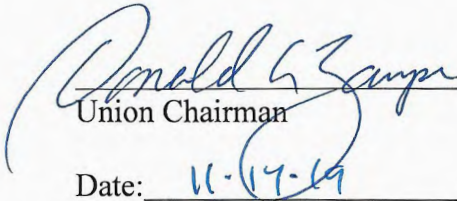 Donald G
Union Chairman
Date: 11-14-19